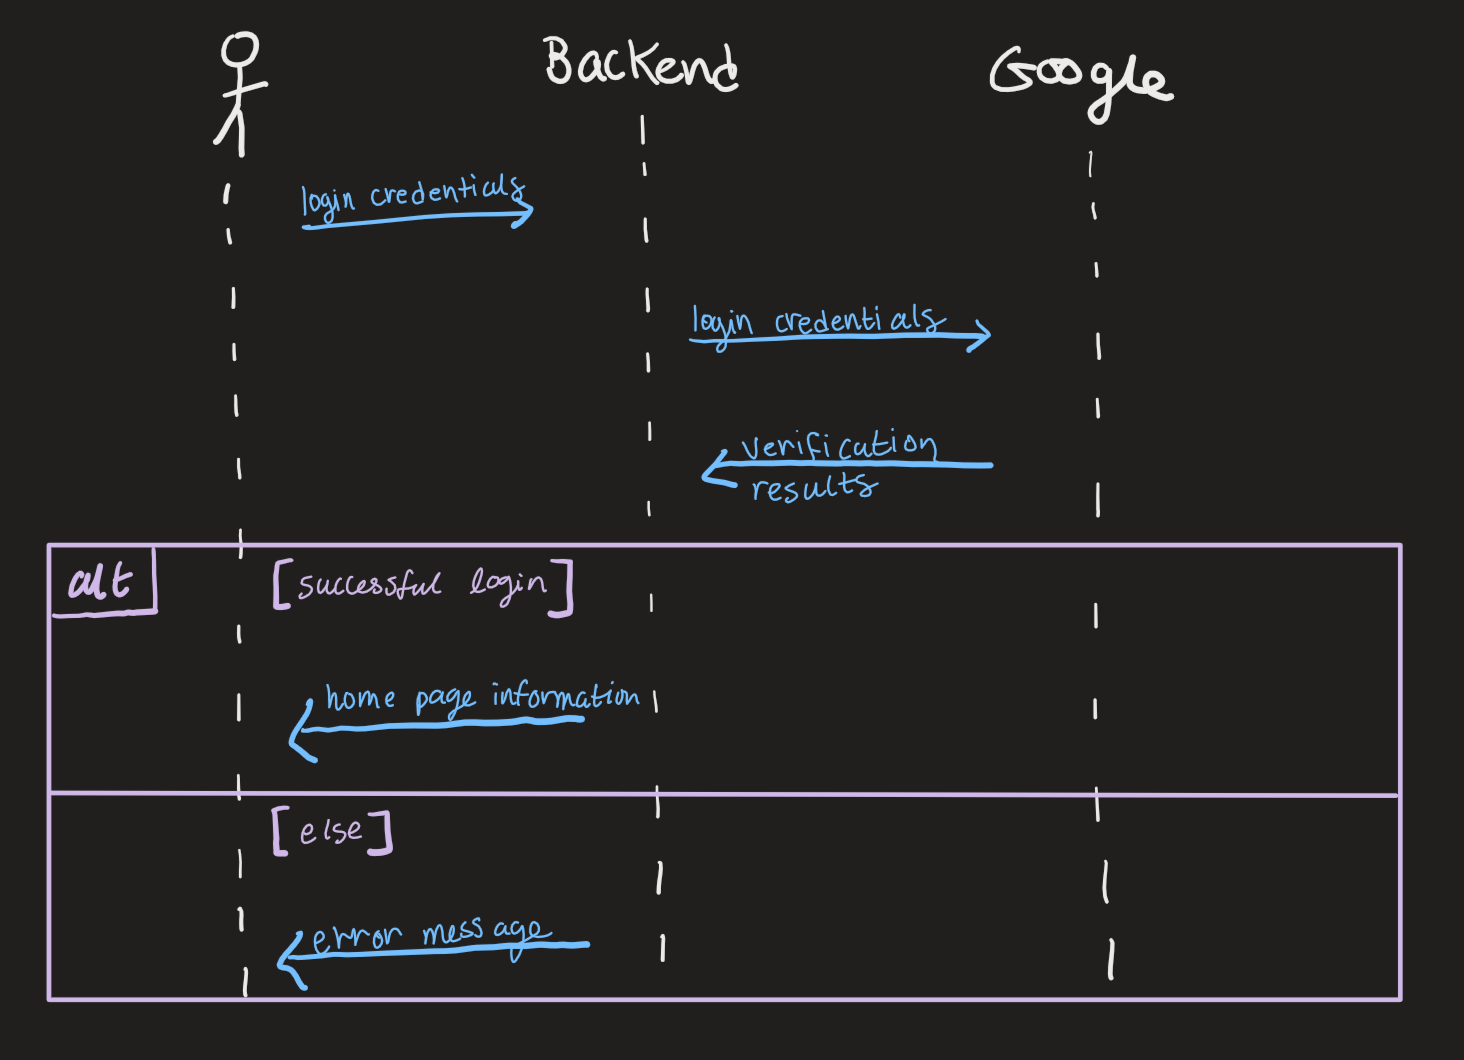 Backend
Google
login credentials
login credentials
verification
results
alt
[successful login]
home page information
[else]
error message